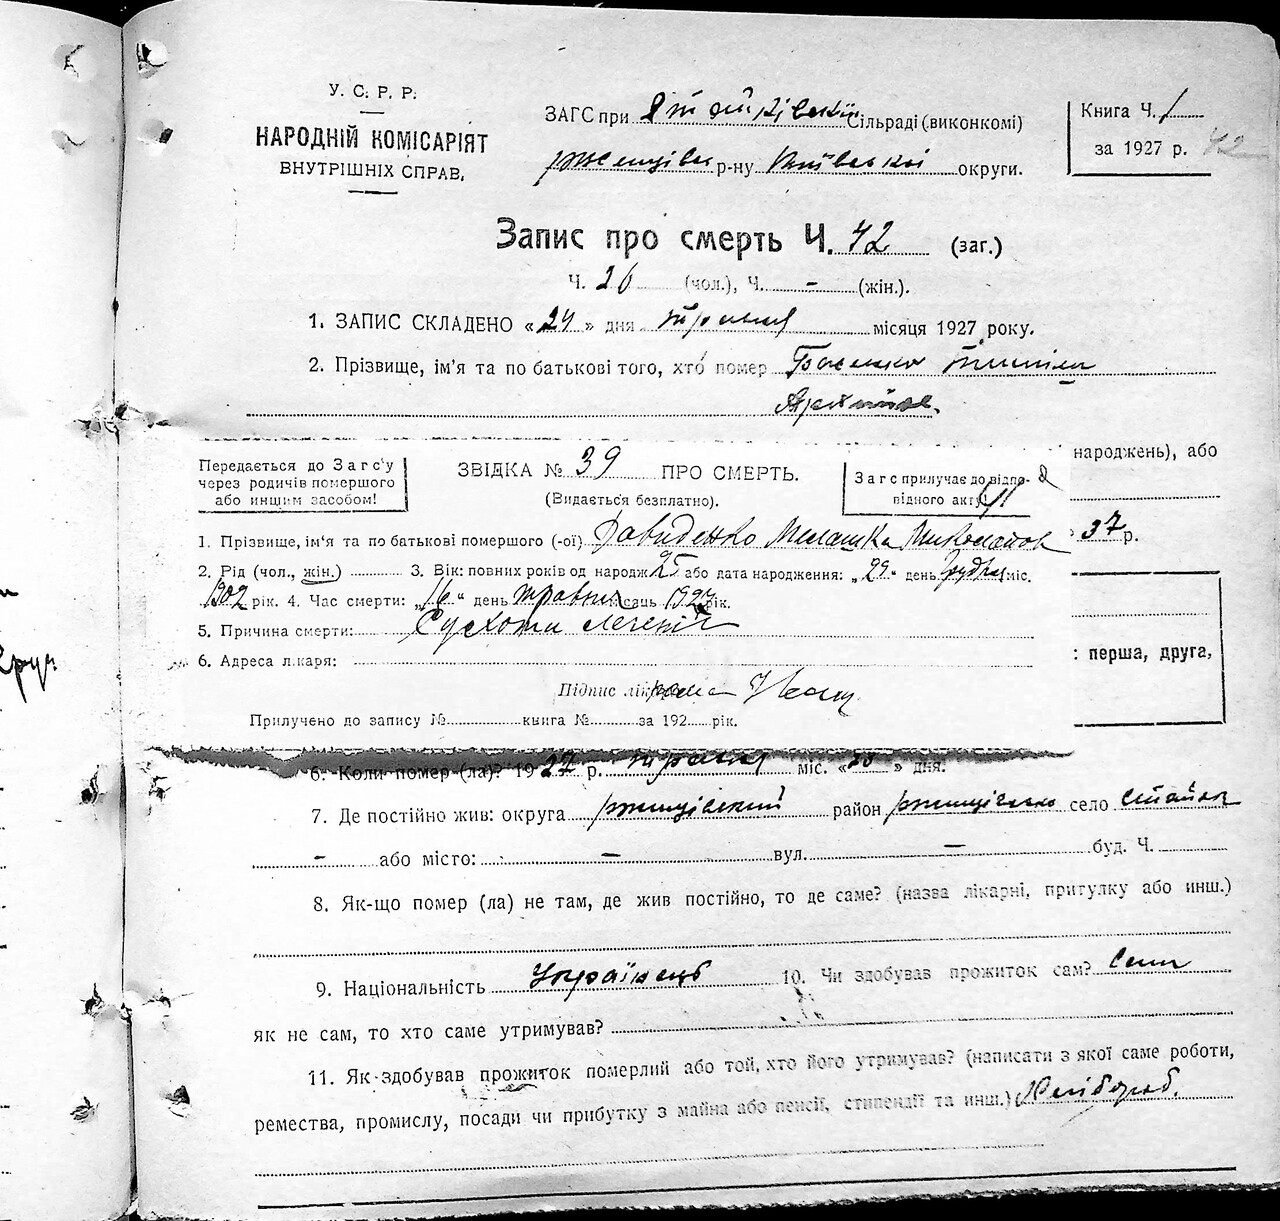 У. С. Р. Р.
НАРОДНІЙ КОМІСАРІЯТ
ВНУТРІШНІХ СПРАВ.
ЗАГС при Стайківській Сільраді (виконкомі)
ржищівськ р-ну Київської округи.
Книга Ч. 1
за 1927 р. 42
Запис про смерть Ч. 42 (заг.)
Ч. 26 (чол.), Ч. - (жін.).
1. ЗАПИС СКЛАДЕНО «24» дня травня місяця 1927 року.
2. Прізвище, ім'я та по батькові того, хто помер
народжень), або
37 р.
: перша, друга,
Передається до Загс'у
через родичів помершого
або иншим засобом!
ЗВІДКА № 39 ПРО СМЕРТЬ.
(Видається безплатно).
Загс прилучає до відпо-
відного акту! 41
1. Прізвище, ім'я та по батькові помершого (-ої) Давиденко Мелашка Миколаївн
2. Рід (чол., жін.) 3. Вік: повних років од народж 25 або дата народження: „29" день грудня міс.
1902 рік. 4. Час смерти: „16" день травня місяць 1927 рік.
5. Причина смерти: Сухоти легенів
6. Адреса лікаря:
Підпис лікаря
Прилучено до запису № книга № за 192 рік.
6. Коли помер (ла)? 1927 р. травня міс. « » дня.
7. Де постійно жив: округа ржищівський район ржищівсько село Стайок
- або місто: — вул. — буд. Ч.
8. Як-що помер (ла) не там, де жив постійно, то де саме? (назва лікарні, притулку або инш.)
9. Національність Українець 10. Чи здобував прожиток сам? Сам
як не сам, то хто саме утримував?
11. Як здобував прожиток померлий або той, хто його утримував? (написати з якої саме роботи,
ремества, промислу, посади чи прибутку з майна або пенсії, стипендії та инш.) Хлібороб.